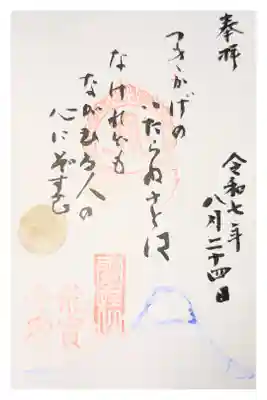 奉拝
令和七年
八月二十四日
つきかげの
いたらぬさとは
なけれども
ながむる人の
心にぞすむ